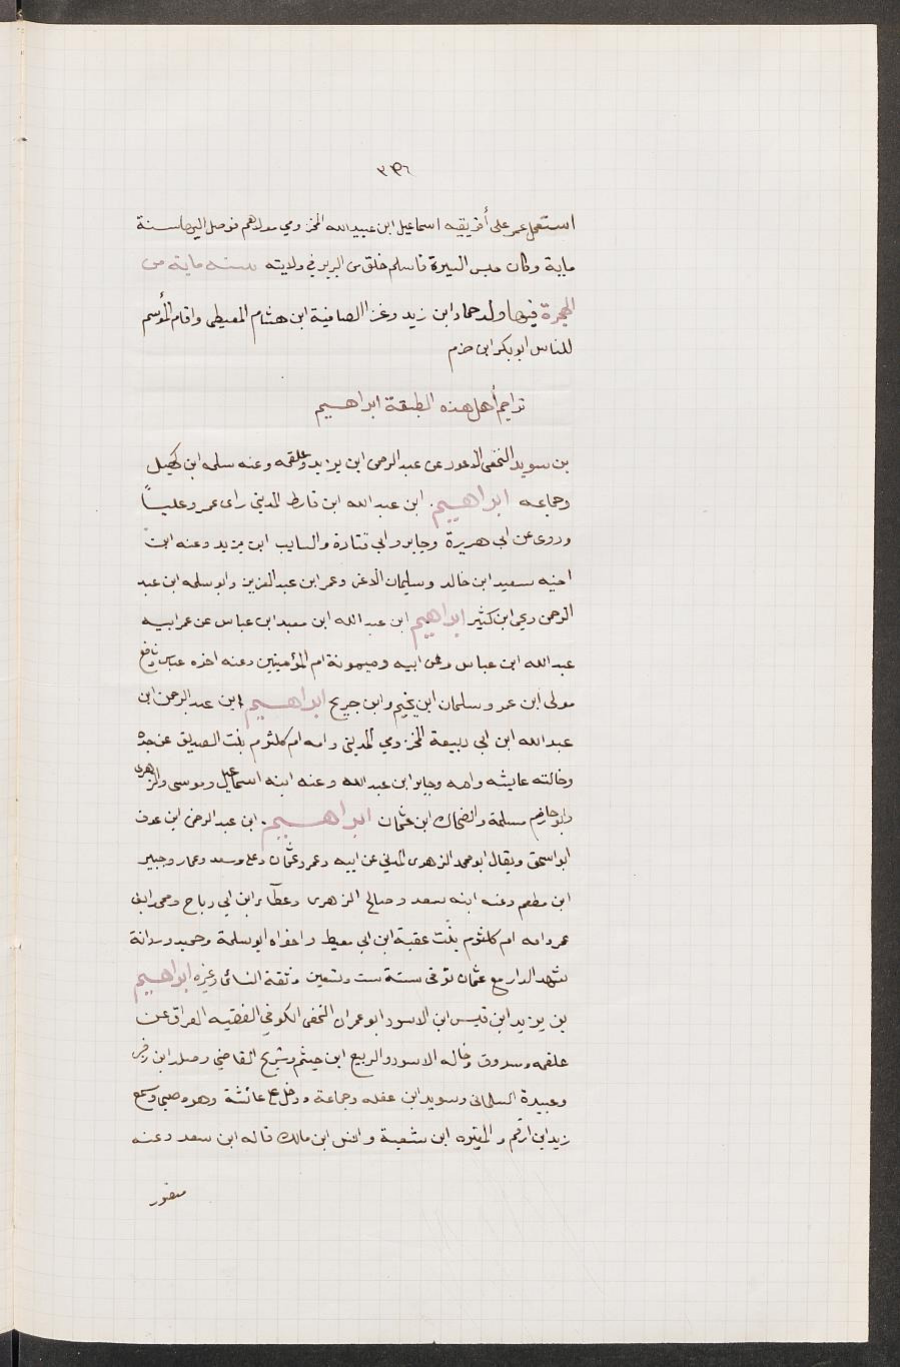 ٣٩٦
استعمل عمر على أفريقيه اسماعيل ابن عبيدالله المخزومي مولاهم فوصل اليها سنة
ماية وكان حسن السيرة فاسلم خلق من البربر في ولايته سنه ماية من
الهجرة فيها ولد حماد ابن زيد وغزا الصافية ابن هشام المعيطى واقام المؤسم
للناس ابو بكر ابن حزم
تراجم أهل هذه الطبقة ابراهيم
بن سويد النخعى الاعور عن عبد الرحمن ابن يزيد وعلقمه وعنه سلمه ابن كهيل
وجماعه ابراهيم ابن عبد الله ابن قارظ المديني راى عمر وعلياً
وروى عن ابي هريرة وجابر وابي قتادة والسايب ابن يزيد وعنه ابن
اخيه سعيد ابن خالد وسليمان الاغر وعمر ابن عبد العزيز وابو سلمه ابن عبد
الرحمن ويحى ابن كثير ابراهيم ابن عبد الله ابن معبد ابن عباس عن عم ابيه
عبد الله ابن عباس وعن ابيه وميمونة ام المؤمنين وعنه اخوه عباس ونافع
مولى ابن عمر وسلمان ابن يحيم وابن جريج ابراهيم ابن عبد الرحمن ابن
عبد الله ابن ابي ربيعة المخزومي المديني وامه ام كلثوم بنت الصديق عن جده
وخالته عايشه وامه وجابر ابن عبد الله وعنه ابنه اسماعيل وموسى والزهرى
وابو حازم مسلمة والضحاك ابن عثمان ابراهيم ابن عبد الرحمن ابن عوف
ابو اسحق ويقال ابو محمد الزهدى المديني عن ابيه وعمر وعثمان وعلى وسعد وعمار وجبير
ابن مطعم وعنه ابنه سعد وصالح الزهرى وعطآء ابن ابي رباح ومحمد ابن
عمر وامه ام كلثوم بنت عقبة ابن ابي معيط واخواه ابو سلمة وحميد
شهد الدار مع عثمان توفى سنة ست وتسعين وثقة النسائى وغيره ابراهيم
بن يزيد ابن قيس ابن الاسود ابو عمران النخعى الكوفي الفقيه العراق عن
علقمه ومسروق وخاله الاسود والربيع ابن خيثم وشريح القاضي وصله ابن زفر
وعبيدة السلمانى وسويد ابن غفله وجماعة ودخل على عائشة وهو صبي وسمع
زيد ابن ارقم والمغيره ابن شعبة وانس ابن مالك قاله ابن سعد وعنه
منصور